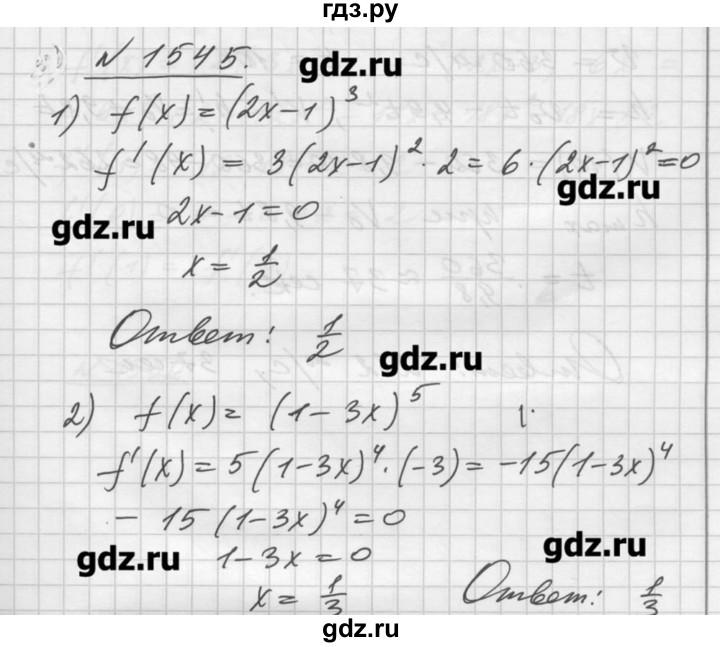 гдз.ру
№ 1545.
gdz.ru
1) f(x) = (2x-1)³
f'(x) = 3(2x-1)² · 2 = 6 · (2x-1)² = 0
gdz.ru
2x-1=0
gdz.ru
x = 1/2
Ответ: 1/2
gdz.ru
2) f(x) = (1-3x)⁵
f'(x) = 5(1-3x)⁴ · (-3) = -15(1-3x)⁴
- 15 (1-3x)⁴ = 0
gdz.ru
1-3x = 0
gdz.ru
x = 1/3
Ответ: 1/3
gdz.ru